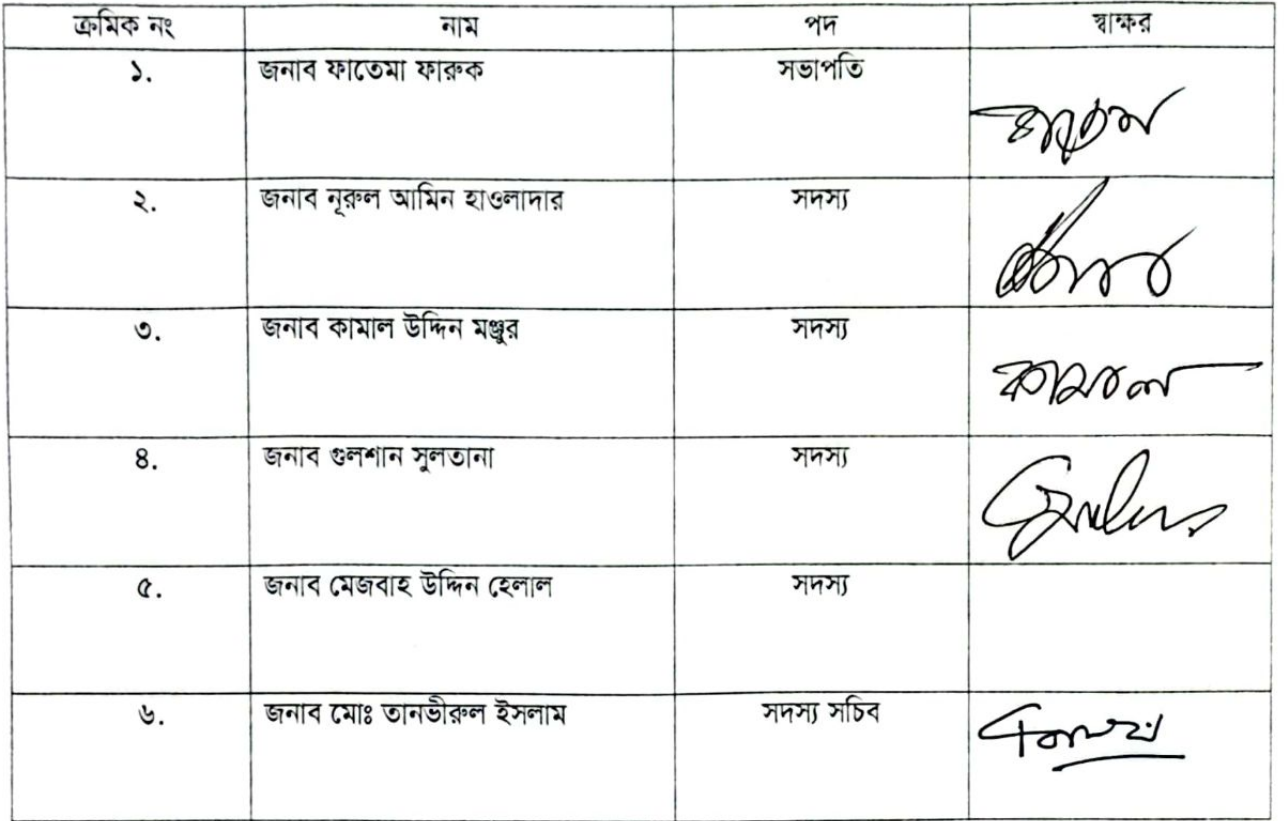 ক্রমিক নং নাম পদ স্বাক্ষর
১. জনাব ফাতেমা ফারুক সভাপতি
২. জনাব নূরুল আমিন হাওলাদার সদস্য
৩. জনাব কামাল উদ্দিন মঞ্জুর সদস্য
কামাল
৪. জনাব গুলশান সুলতানা সদস্য
৫. জনাব মেজবাহ উদ্দিন হেলাল সদস্য
৬. জনাব মোঃ তানভীরুল ইসলাম সদস্য সচিব